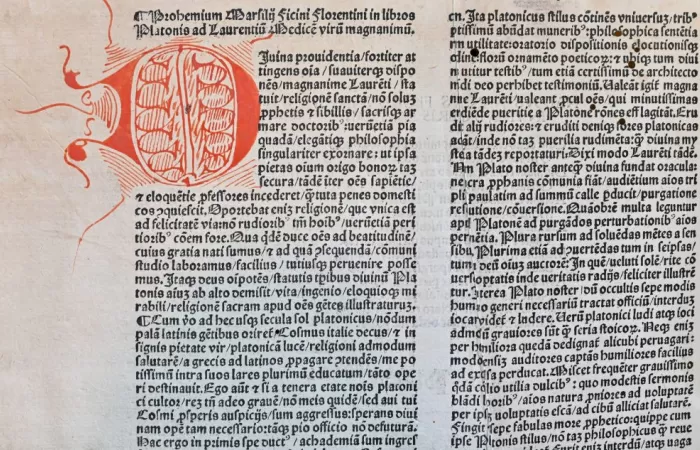 ¶Prohemium Marsilij ficini florentini in libros
Platonis ad Laurentiū Medicē virū magnanimū.
Iuina prouidentia/fortiter at
tingens oīa/suauiterqꝫ dispo
nēs/magnanime Laurēti/sta
tuit/religionē sanctā/nō soluꝫ
ꝓphetis & sibillis/sacrisqꝫ ar
mare doctoribꝰ:uerūetiā pia
quadā/elegātiqꝫ philosophia
singulariter exornare: ut ipsa
pietas oium origo bonoꝝ taꝫ
secura/tādē īter oēs sapiētie/
& eloquētie ꝓfessores incederet/qꝫtuta penes domesti
cos ꝯquiescit.Oportebat eniꝫ religionē/que vnica est
ad felicitatē via:nō rudioribꝰ tm̄ hoibꝰ/uerūetiā peri
tioribꝰ cōem fore.Qua q̄dē duce oēs ad beatitudinē/
cuius gratia nati sumus/& ad quā ꝯsequendā/cōmuni
studio laboramus/facilius/tutiusqꝫ peruenire posse
mus.Itaqꝫ deus oīpotēs/statutis tꝑibus diuinū Pla
tonis aīuꝫ ab alto demisit/vita/ingenio/eloquioqꝫ mi
rabili/religionē sacram apud oēs gētes illustraturuꝫ.
¶Cum ṽo ad hec usqꝫ secula sol platonicus/nōdum
palā latinis gētibus oriret᷑:Cosmus italie decus/& in
signis pietate vir/platonicā lucē/religioni admodum
salutarē/a grecis ad latinos ꝓpagare ꝯtendēs/me po
tissimū intra suos lares plurimū educatum/tāto ope
ri destinauit.Ego aūt & si a tenera etate nois platoni
ci cultor/reꝫ tn̄ adeo grauē/nō meis quidē/sed aui tui
Cosmi ꝓsperis auspicijs/sum aggressus:sperans diui
nam opē tam necessario:tāqꝫ pio officio nō defuturā.
Hac ergo in primis spe ductꝰ/achademiā sum ingres
cn.Ita platonicus stilus cōtinēs vniuersuꝫ/tribꝰ
ptissimū abūdat muneribꝰ:philosophica sentētia
rm utilitate:oratorio dispositionis elocutionisqꝫ
odine:florū ornamēto poeticoꝝ:& ubiqꝫ tum diui
utitur testibꝰ/tum etiā certissimū de architecto
mūdi deo perhibet testimoniū.Ualeāt igit᷑ magna
nime Laurēti/ualeant ꝓcul oēs/qui minutissimas
Platone rōnes efflagitāt.Eru
dit alij rudiores:& eruditi deniqꝫ fores platonicas
adāt/inde nō taꝫ puerilia rudimēta:qꝫ diuina my
stēa tādeꝫ reportaturi.Dixi modo Laurēti tādē.
Nn Plato noster anteqꝫ diuina fundat oracula:
plī paulatim ad summū calle ꝑducit/purgatione
resutione/cōuersione.Quāobrē multa leguntur
apd Platonē ad purgādos perturbationibꝰ aīos
pernētia.Plura rursum ad soluēdas mētes a sen
sibu.Plurima etiā ad ꝯuertēdas tum in seipsas/
tum deū oium auctorē:In quē/ueluti solē/rite cō
tur.Iterea Plato noster/dū occultis sepe modis
humo generi necessariū tractat officiū/interduꝫ
iocarividet᷑ & ludere.Uerū platonici ludi atqꝫ ioci
admdū grauiores sūt qꝫ seria stoicoꝝ.Neqꝫ eniꝫ
per hūiliora quedā dedignat᷑ alicubi peruagari:
auditores captās humiliores facilius
ad excsa perducat.Miscet frequēter grauissimo
utilia dulcibꝰ: quo modestis sermonis
blādi horibꝰ/aios natura ꝓniores ad uoluptatē
per ipsꝫ voluptatis escā/ad cibū alliciat salutarē.
Fingit sepe fabulas more ꝓphetico:quippe cum
ipse Pltonis stilus/nō taꝫ philosophicus qꝫ reue